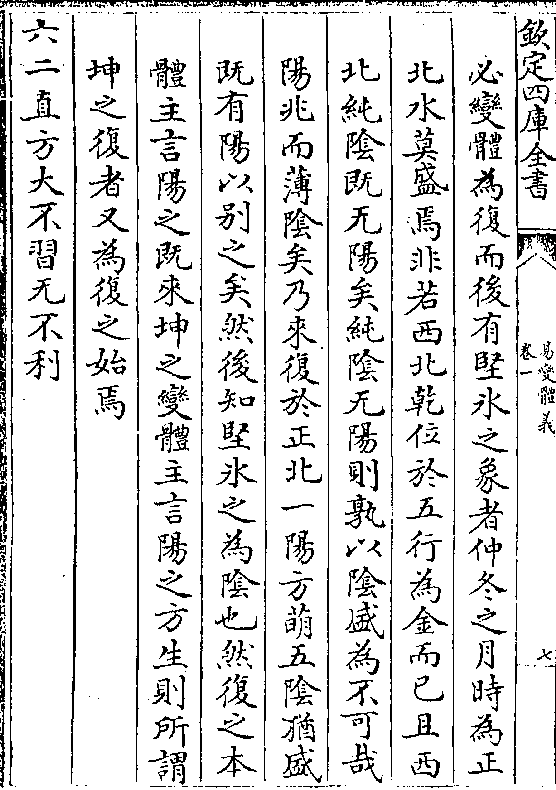 欽定四庫全書
易變體義
卷一
七
必變體為復而後有堅氷之象者仲冬之月時為正
北水莫盛焉非若西北乾位於五行為金而已且西
北純陰既无陽矣純陰无陽則孰以陰盛為不可哉
陽兆而薄陰矣乃來復於正北一陽方萌五陰猶盛
既有陽以别之矣然後知堅氷之為陰也然復之本
體主言陽之既來坤之變體主言陽之方生則所謂
坤之復者又為復之始焉
六二直方大不習无不利